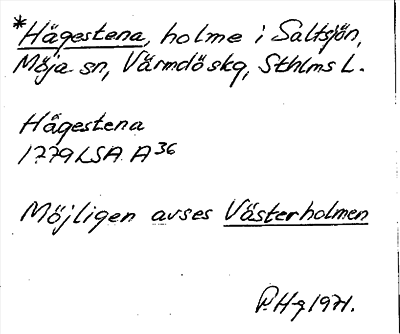 *Hågestena, holme i Saltsjön,
Möja sn, Värmdö skg, Sthlms L.
Hågestena
1779 LSA A36
Möjligen avses Västerholmen
P.Hg 1971.